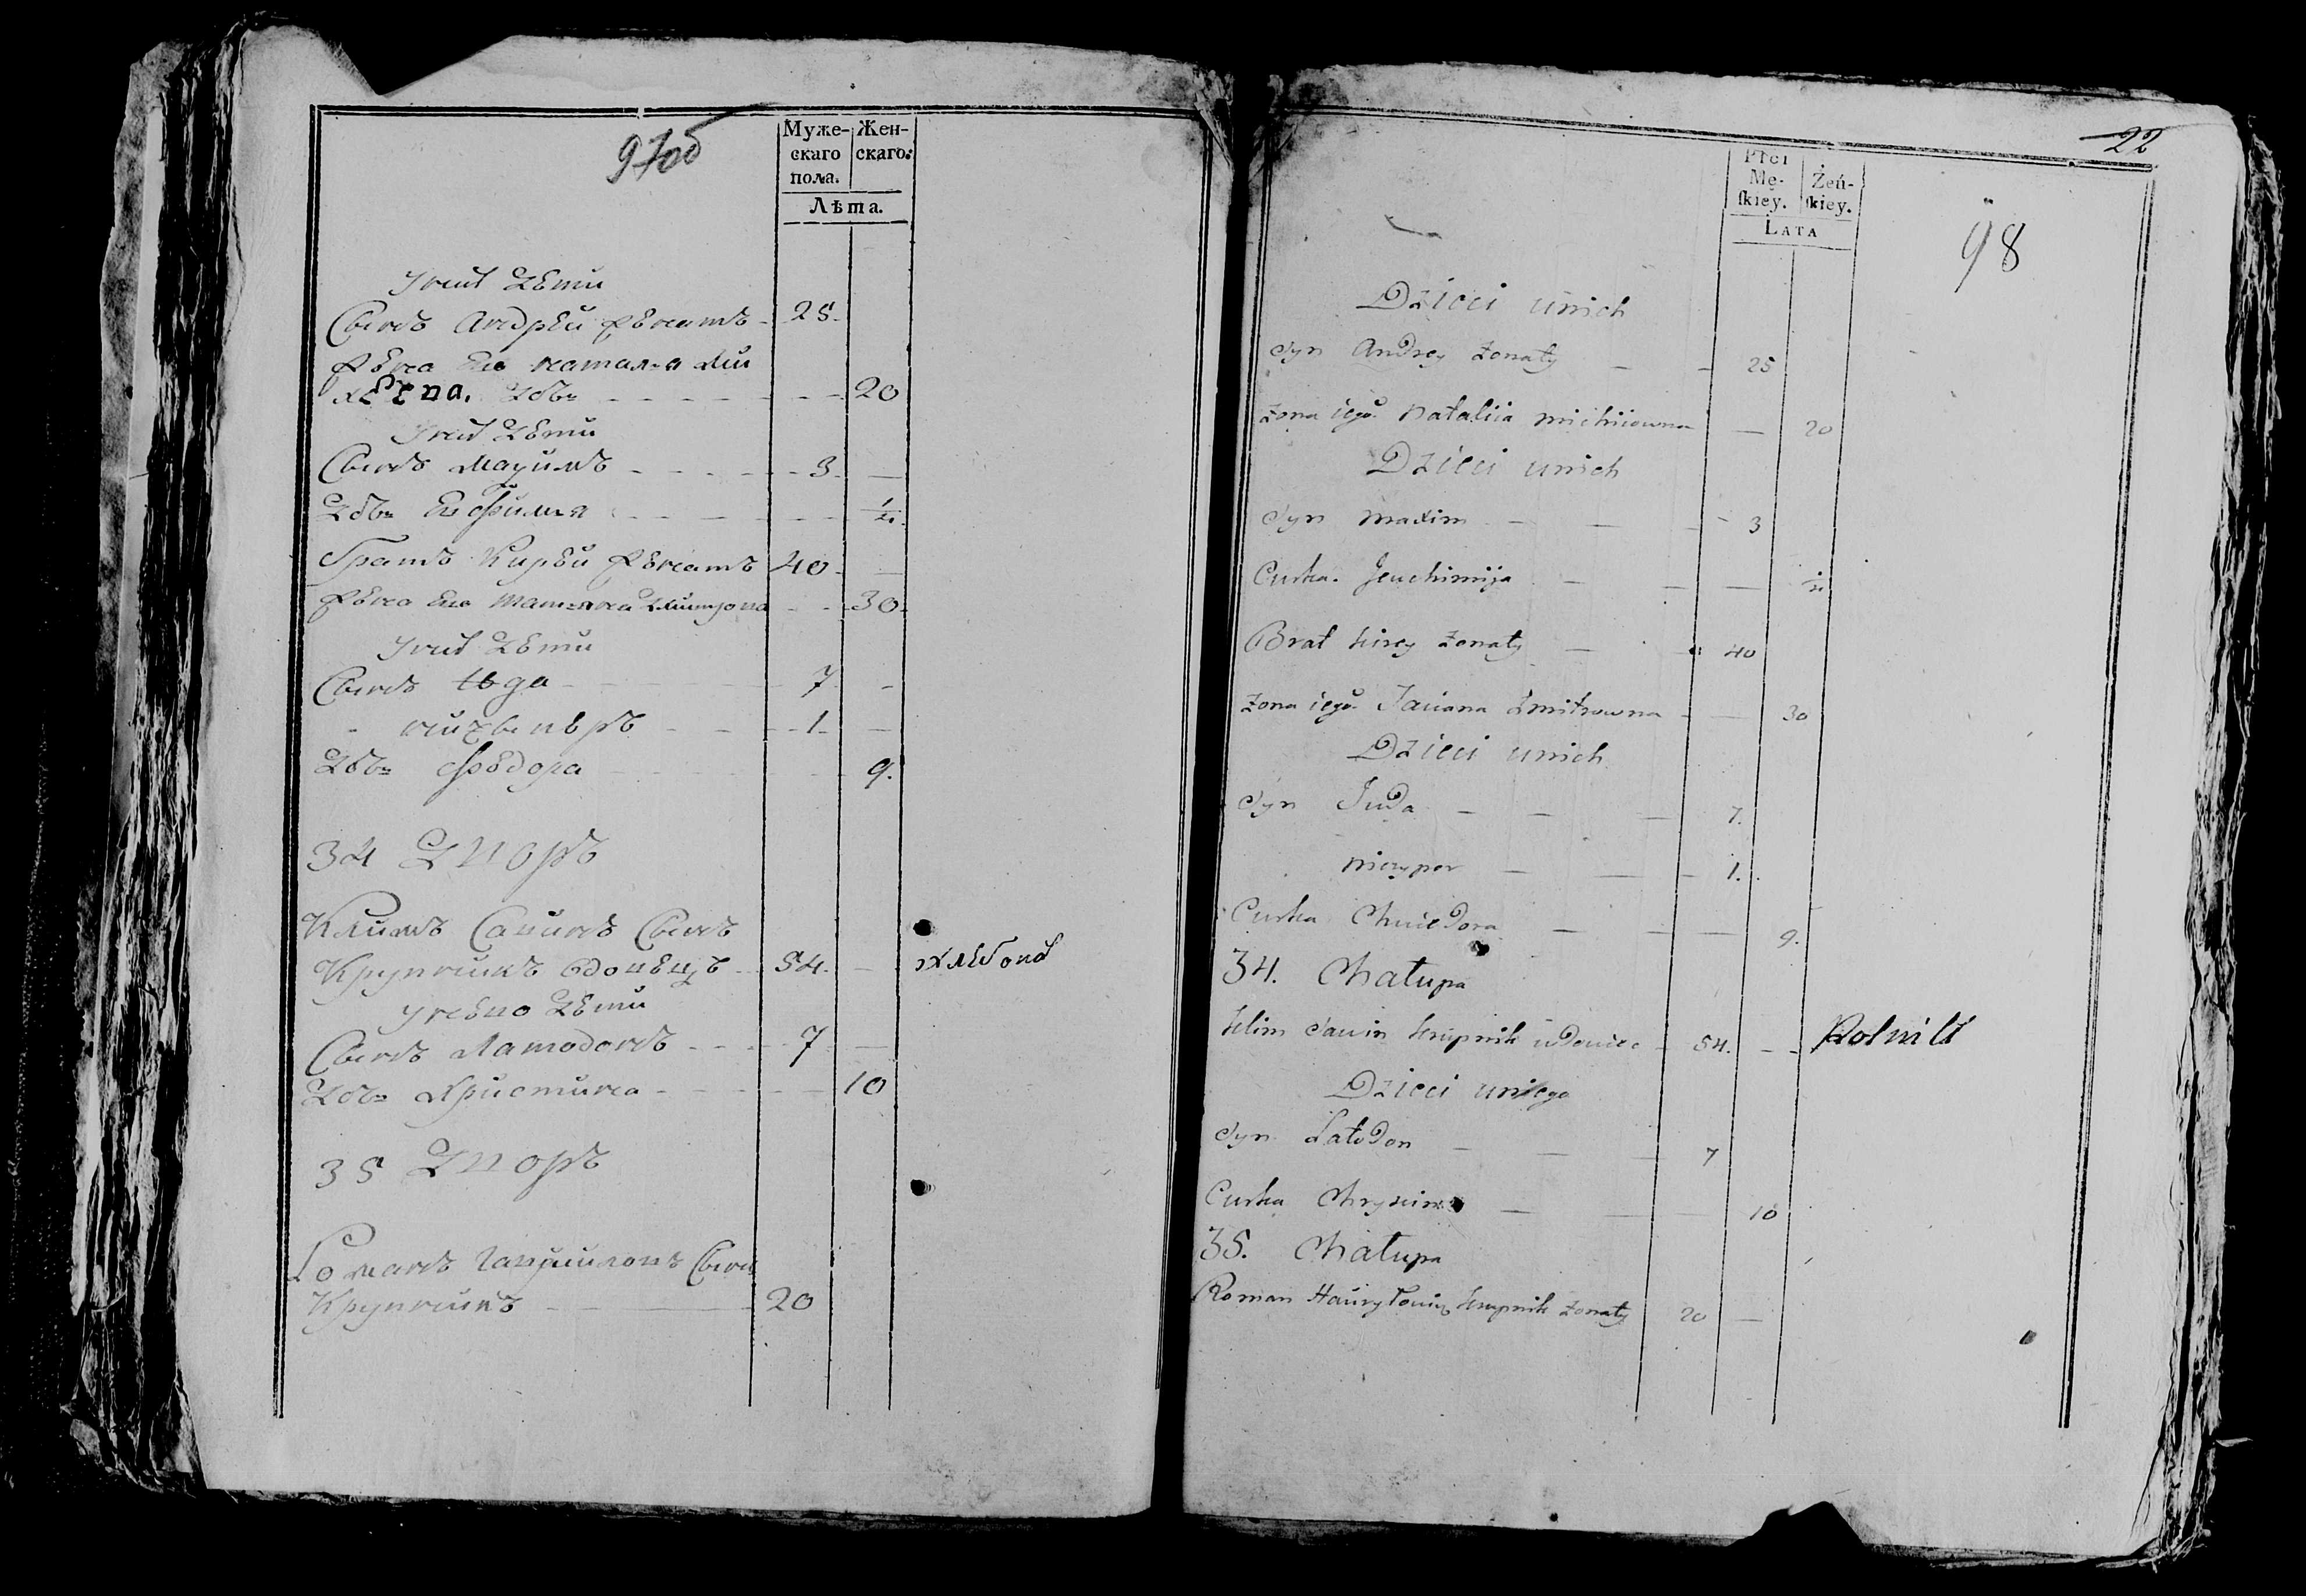 97об
Муже-
скаго
пола.
Жен-
скаго.
Лѣта.
У них Дети
Сынъ Андрей женатъ 25
жена Ево наталя Ми
хеева Дочь 20
У них Дети
Сынъ Мацимъ 3
Дочь Евфимия 1/2
Братъ Кирей женатъ 40
жена Ево татяна Дмитрова 30
У них Дети
Сынъ 7
ничыперъ 1
Дочь Федора 9
34 Дворъ
Климъ Савинъ Сынъ
Крупникъ вдовецъ 54 хлебопа
у нево Дети
Сынъ Латодонъ 7
Дочь Христина 10
35 Дворъ
Романъ Гаврилович Сынъ
Крупникъ 20
22
98
Płci
Mę-
ſkiey.
Żeń-
ſkiey.
LATA
Dzieci unich
Syn Andrey żonaty 25
Żona iego Nataliia Michiiowna 20
Dzieci unich
Syn Maxim 3
Curka Jeuchimija 1/2
Brat Kirey żonaty 40
Żona iego Taciana Zmitrowna 30
Dzieci unich
Syn Juda 7.
Niczypor 1.
Curka Chwiedora 9.
34. Chałupa
Klim Sawin Krupnik wdowiec 54. Rolnik
Dzieci uniego
Syn Łatodon 7
Curka Chryscina 10
35. Chałupa
Roman Hawryłowicz Krupnik żonaty 20